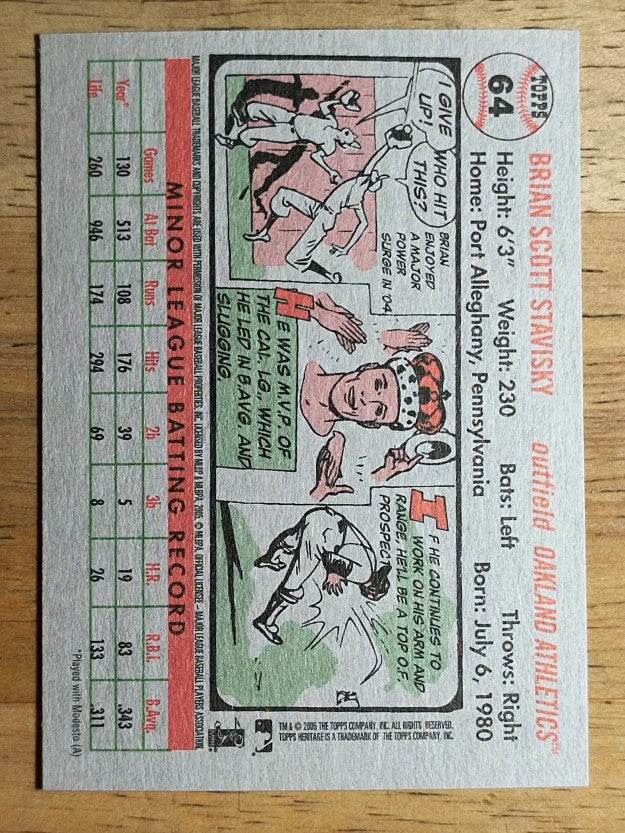 TOPPS
64
BRIAN SCOTT STAVISKY outfield OAKLAND ATHLETICS™
Height: 6'3" Weight: 230 Bats: Left Throws: Right
Home: Port Alleghany, Pennsylvania Born: July 6, 1980
I GIVE UP!
WHO HIT THIS?
BRIAN
ENJOYED
A MAJOR
POWER
SURGE IN '04.
HE WAS M.V.P. OF
THE CAL. LG., WHICH
HE LED IN B.AVG. AND
SLUGGING.
IF HE CONTINUES TO
WORK ON HIS ARM AND
RANGE, HE'LL BE A TOP O.F.
PROSPECT.
TM & © 2005 THE TOPPS COMPANY, INC. ALL RIGHTS RESERVED.
TOPPS HERITAGE IS A TRADEMARK OF THE TOPPS COMPANY, INC.
MAJOR LEAGUE BASEBALL TRADEMARKS AND COPYRIGHTS ARE USED WITH PERMISSION OF MAJOR LEAGUE BASEBALL PROPERTIES, INC. LICENSED BY MLBP & MLBPA, 2005 © MLBPA, OFFICIAL LICENSEE – MAJOR LEAGUE BASEBALL PLAYERS ASSOCIATION
MINOR LEAGUE BATTING RECORD
Games At Bat Runs Hits 2b 3b H.R. R.B.I. B.Avg.
Year* 130 513 108 176 39 5 19 83 .343
Life 260 946 174 294 69 8 26 133 .311
*Played with Modesto (A)